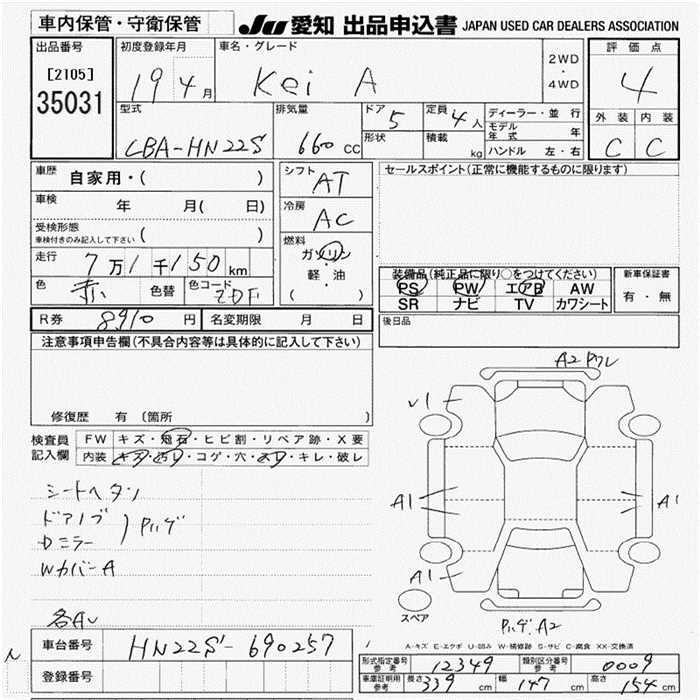 車内保管・守衛保管
JU 愛知 出品申込書 JAPAN USED CAR DEALERS ASSOCIATION
出品番号
[2105]
35031
初度登録年月
19 4月
車名・グレード
Kei A
2WD
・
4WD
評価点
4
外装 内装
C C
型式
CBA-HN22S
排気量
660 CC
ドア 5
形状
定員 4人
積載 kg
ディーラー・並行
モデル年式 年
ハンドル 左・右
車歴 自家用・( )
車検 年 月( 日)
受検形態
車検付きのみ記入して下さい ( )
走行 7万1千150km
色 赤 色替 色コード ZDF
シフト AT
冷房 AC
燃料
ガソリン
・
軽・油
( )
セールスポイント(正常に機能するものに限ります)
装備品(純正品に限り○をつけてください)
PS PW エアB AW
SR ナビ TV カワシート
新車保証書
有・無
R券 8910円 名変期限 月 日
後日品
注意事項申告欄(不具合内容等は具体的に記入して下さい)
修復歴 有 〔箇所 〕
検査員記入欄
FW キズ・飛石・ヒビ割・リペア跡・X要
内装 キズ・汚れ・コゲ・穴・スレ・キレ・破レ
シートヘタリ
ドアノブ
Dミラー
Pハゲ
WカバーA
各AU
A2 Pワレ
A1
A1
A1
Pハゲ.A2
スペア
A-キズ E-エクボ U-凹み W-補修跡 S-サビ C-腐食 XX-交換済
車台番号 HN22S-690257
登録番号
形式指定番号 参考 12349
類別区分番号 参考 0009
車庫証明用 参考 長さ 339 cm 幅 147 cm 高さ 154 cm